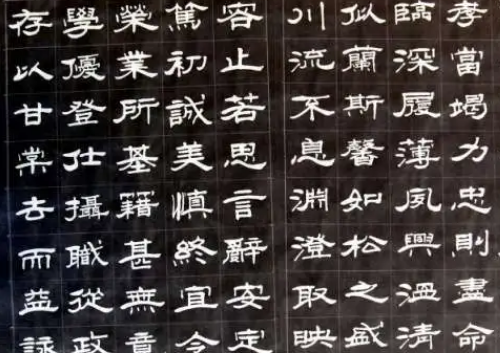 孝當竭力忠則盡命
臨深履薄夙興溫清
似蘭斯馨如松之盛
川流不息淵澄取映
容止若思言辭安定
篤初誠美慎終宜令
榮業所基籍甚無竟
學優登仕攝職從政
存以甘棠去而益詠